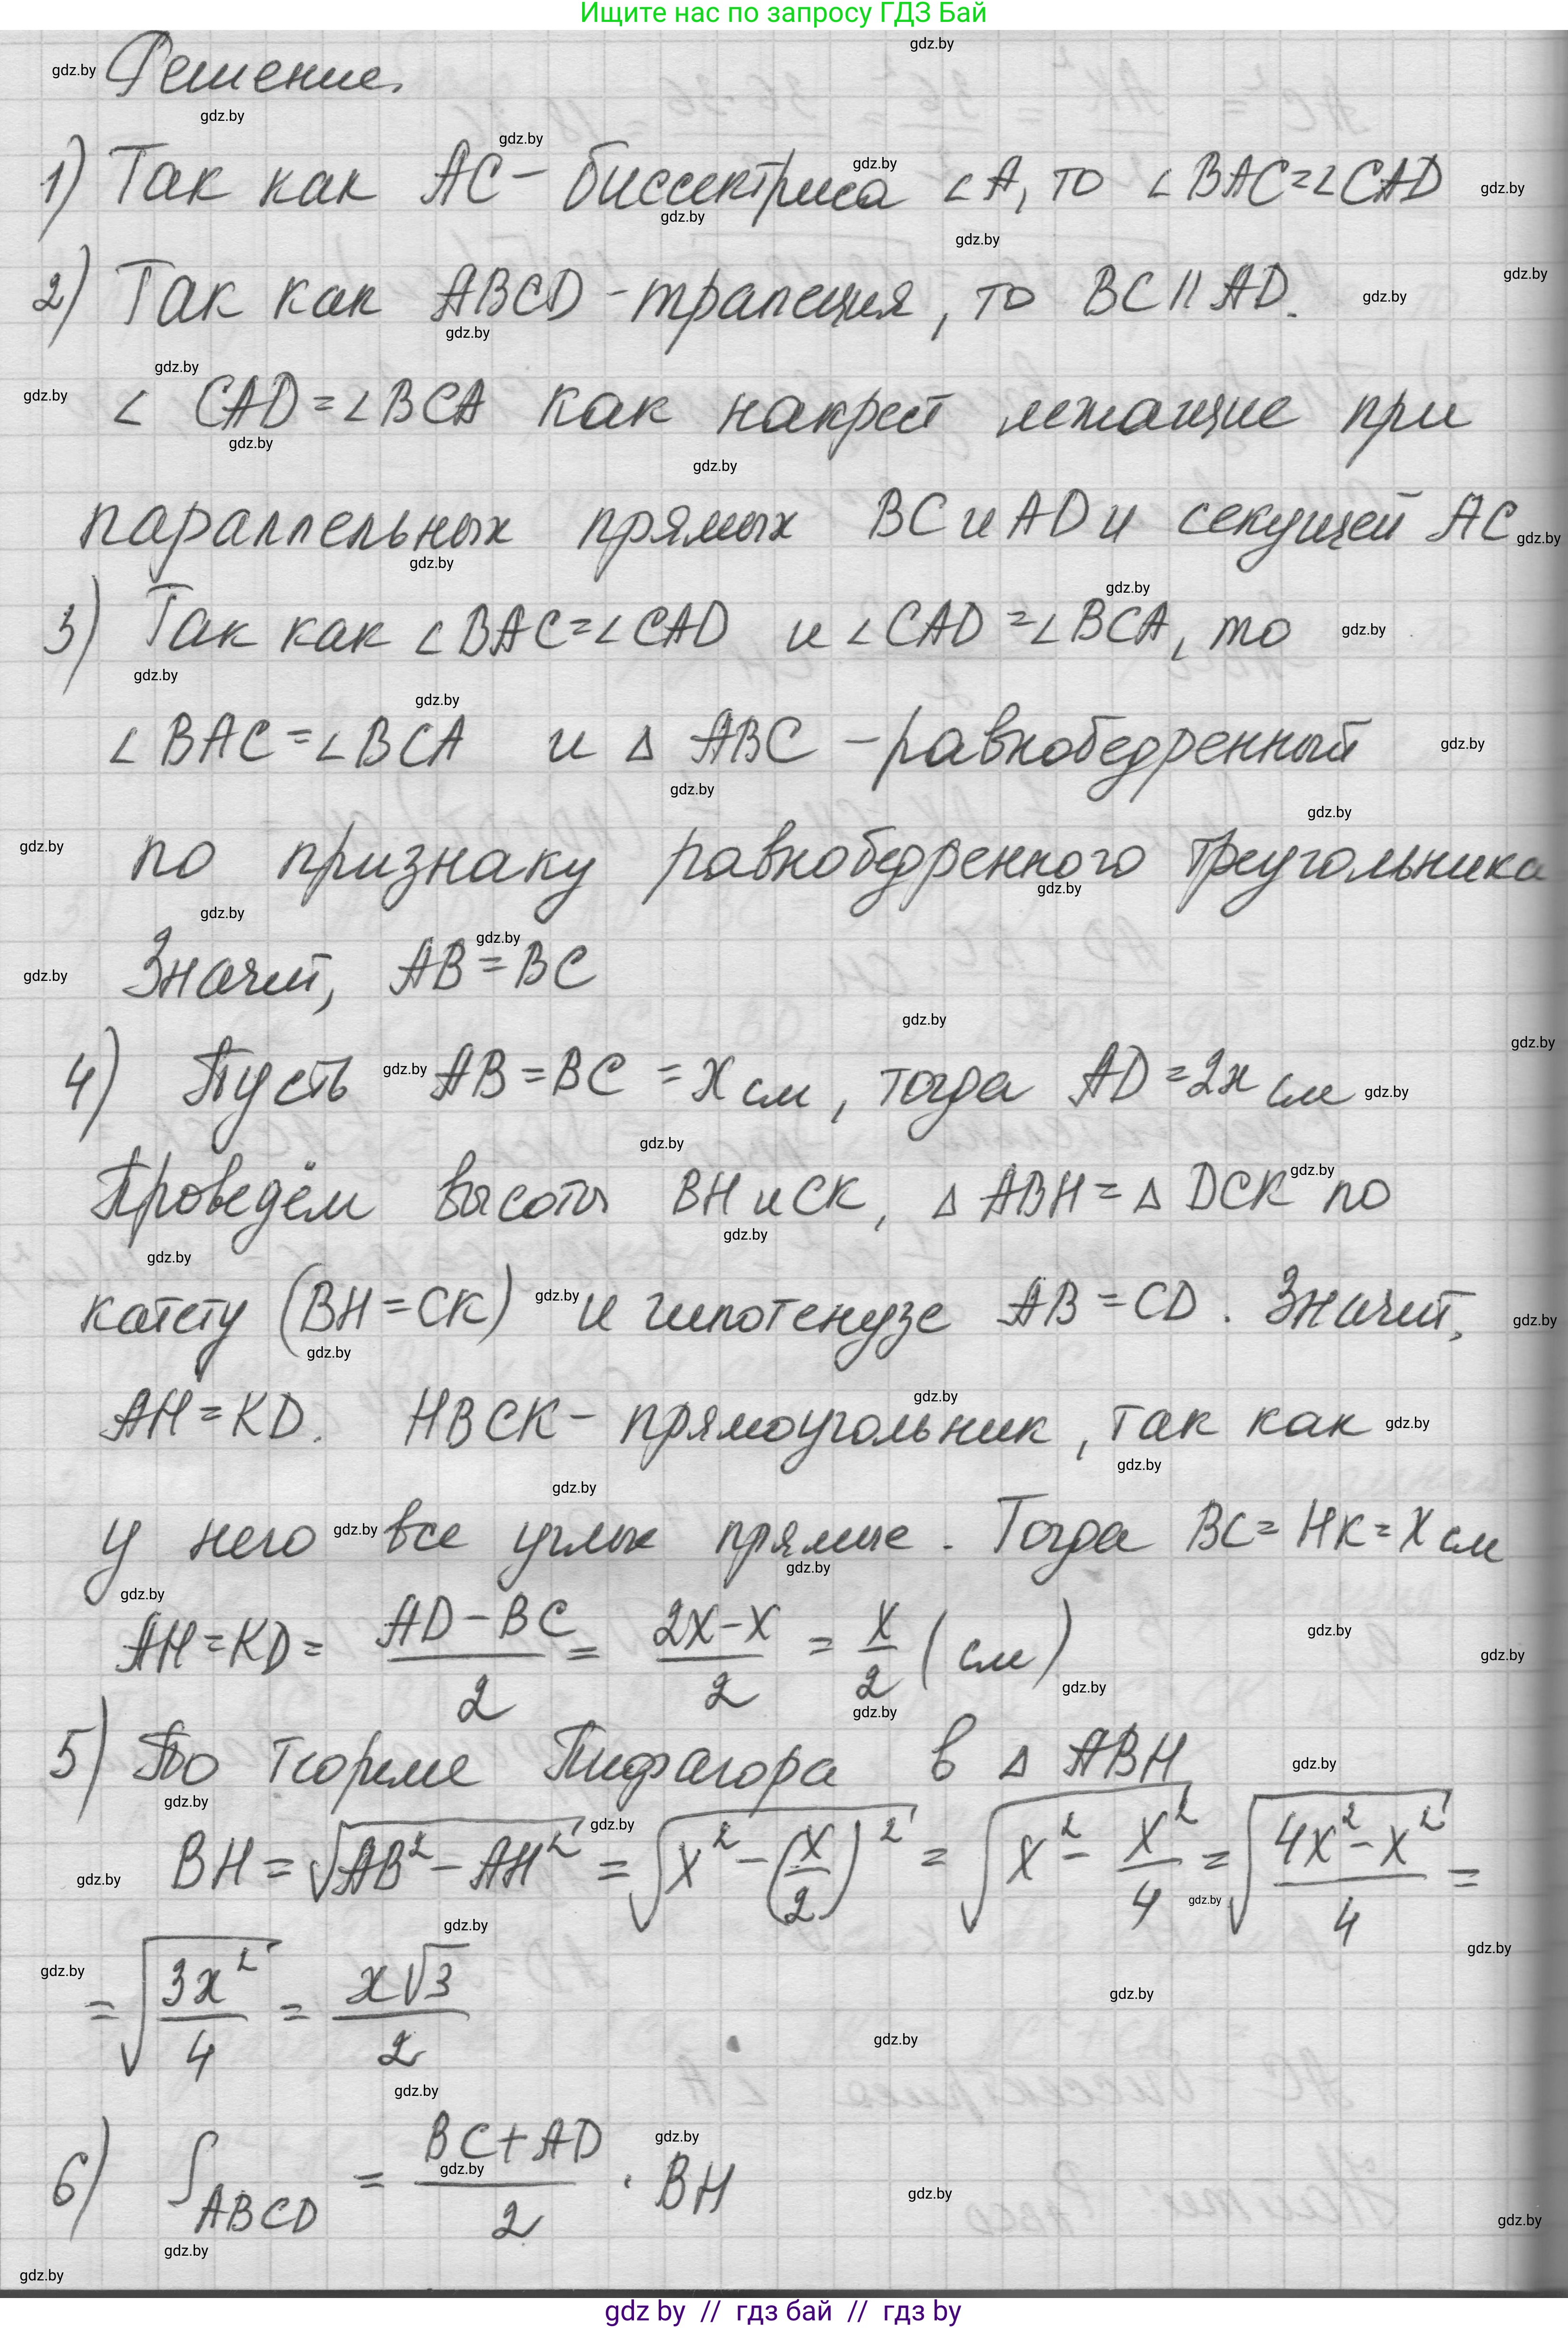 Ищите нас по запросу ГДЗ Бай
Решение.
1) Так как AC - биссектриса ∠A, то ∠BAC=∠CAD
2) Так как ABCD - трапеция, то BC || AD.
∠ CAD = ∠BCA как накрест лежащие при
параллельных прямых BC и AD и секущей AC
3) Так как ∠BAC=∠CAD и ∠CAD=∠BCA, то
∠BAC=∠BCA и Δ ABC - равнобедренный
по признаку равнобедренного треугольника
Значит, AB=BC
4) Пусть AB=BC = x см, тогда AD=2x см
Проведём высоты BH и CK, Δ ABH = Δ DCK по
катету (BH=CK) и гипотенузе AB=CD. Значит,
AH=KD. HBCK - прямоугольник, так как
у него все углы прямые. Тогда BC=HK=x см
AH=KD= (AD-BC)/2 = (2x-x)/2 = x/2 (см)
5) По теореме Пифагора в Δ ABH
BH = √(AB²-AH²) = √(x²-(x/2)²) = √(x²-x²/4) = √((4x²-x²)/4) =
= √(3x²/4) = x√3/2
6) S_ABCD = (BC+AD)/2 · BH
gdz by // гдз бай // гдз by